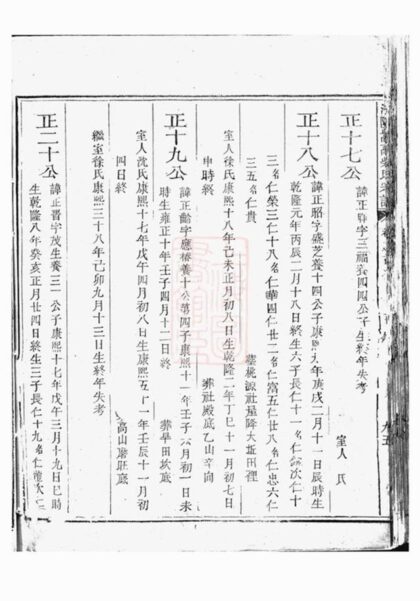 正十七公
諱正
字三福養四四公子生終年失考
室人 氏
正十八公
諱正昭字盛芝養十四公子康熙九年庚戌二月十一日辰時生
乾隆元年丙辰二月十八日終生六子長仁十一名仁 次仁十
三名仁榮三仁十八名仁華四仁廿一名仁富五仁廿八名仁忠六仁
三五名仁貴
葬桃源社屋降大坵田裡
室人徐氏康熙十八年己未正月初八日生乾隆二年丁巳十一月初七日
申時終
葬社殿底乙山辛向
正十九公
諱正齡字應椿養十公第四子康熙十一年壬子六月初一日未
時生雍正十年壬子四月十二日終
葬旱田坎底
室人沈氏康熙十七年戊午四月初八日生康熙五十一年壬辰十一月初
四日終
高山磨旺底
繼室徐氏康熙三十八年己卯九月十三日生終年失考
正二十公
諱正晉字茂生養三一公子康熙十七年戊午三月十九日巳時
生乾隆八年癸亥正月廿四日終生三子長仁十九名仁 次仁